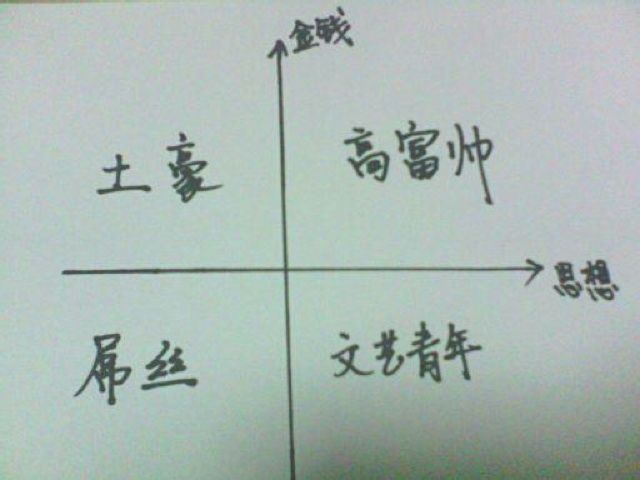 金钱
土豪 高富帅
思想
屌丝 文艺青年